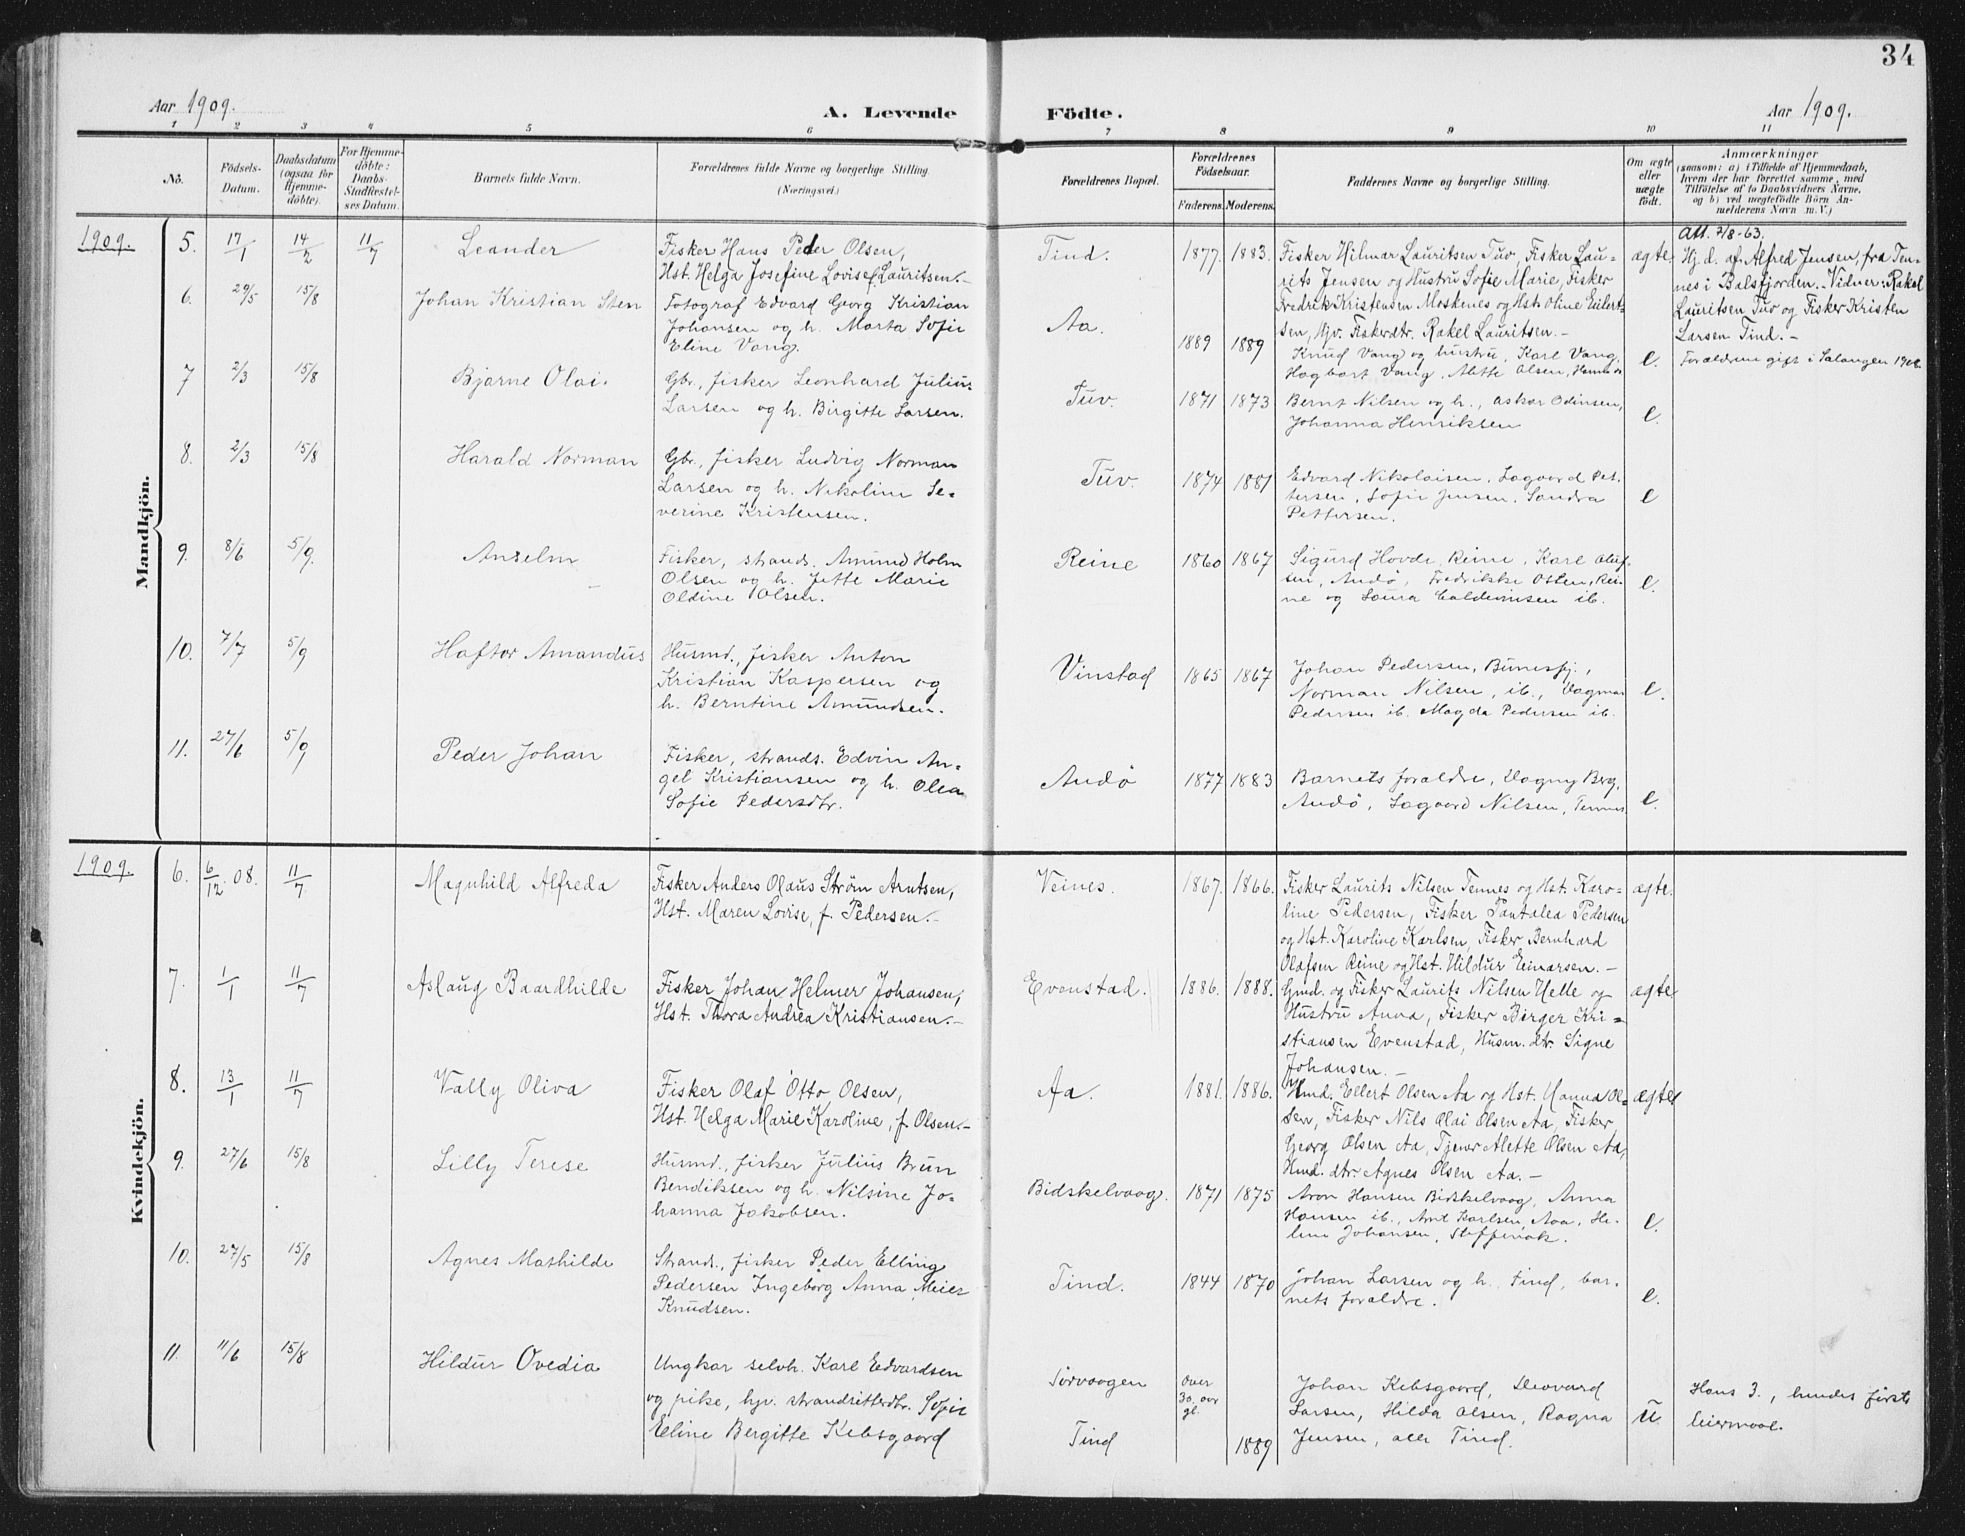 34
Aar 1909.
A. Levende
Födte.
Aar 1909.
1 2 3 4 5 6 7 8 9 10 11
No.
Födsels-
Datum.
Daabsdatum
(ogsaa for
Hjemme-
döbte).
For Hjemme-
döbte:
Daabs-
Stadfæstel-
ses Datum.
Barnets fulde Navn.
Forældrenes fulde Navne og borgerlige Stilling
(Næringsvei.)
Forældrenes Bopæl.
Forældrenes
Födselsaar.
Faderens. Moderens.
Faddernes Navne og borgerlige Stilling.
Om ægte
eller
uægte
födt.
Anmærkninger
(saasom: a) i Tilfælde af Hjemmedaab,
hvem der har forrettet samme, med
Tilföielse af to Daabsvidners Navne,
og b) ved uægtefödte Börn An-
melderens Navn m. V.)
Mandkjön.
1909.
5. 17/1 14/2 11/7 Leander
Fisker Hans Peder Olsen,
Hst. Helga Josefine Lovise f. Lauritsen.-
Tind. 1877. 1883.
Fisker Hilmar Lauritsen Tuv, Fisker Lau-
rits Jensen og Hustru Sofie Marie, Fisker
Fredrik Kristensen Moskenes og Hst. Oline Eilert-
sen, Ugv. Fiskerdtr. Rakel Lauritsen.-
ægte.
Att. 2/8-63.
Hj. d. af Alfred Jensen, fra Ten-
nes i Balsfjorden. - Vidner: Rakel
Lauritsen Tuv og Fisker Kristen
Larsen Tind. -
6. 29/5 15/8 Johan Kristian Sten
Fotograf Edvard Georg Kristian
Johansen og h. Marta Sofie
Eline Vang.
Aa. 1889 1889
Knud Vang og hustru, Karl Vang,
Hagbart Vang, Alette Olsen,
e.
Forældrene gift i Salangen 1908.
7 2/3 15/8 Bjarne Olai.
Gbr., fisker Leonhard Julius
Larsen og h. Birgitte Larsen.
Tuv. 1871 1873
Bernt Nilsen og h., Askar Odinsen,
Johanna Henriksen
e.
8. 2/3 15/8 Harald Norman
Gbr., fisker Ludvig Norman
Larsen og h. Nikoline Se-
verine Kristensen.
Tuv. 1874 1881
Edvard Nikolaisen, Lagaard Pet-
tersen, Sofie Jensen, Sandra
Pettersen.
e
9. 8/6 5/9. Anselm
Fisker, strands. Amund Holm
Olsen og h. Jette Marie
Oldine Olsen.
Reine 1860 1867
Sigurd Hovde, Reine, Karl Oluf-
sen, Andö, Fredrikke Osten, Rei-
ne og Laura Caldevinsen ib.
e.
10. 7/7 5/9 Haftor Amandus
Husmd., fisker Anton
Kristian Kaspersen og
h. Berntine Amundsen.
Vinstad 1865 1867
Johan Pedersen, Bunesfj.,
Norman Nilsen, ib., Dagmar
Pedersen ib. Magda Pedersen ib.
e.
11. 27/6 5/9 Peder Johan
Fisker, strands. Edvin An-
gel Kristiansen og h. Olea
Sofie Pedersdtr.
Andö 1877 1883
Barnets forældre, Dagny Berg,
Andö, Lagaard Nilsen, Tennes
e.
Kvindekjön.
1909.
6. 6/12 08. 11/7 Magnhild Alfreda
Fisker Anders Olaus Ström Arntsen,
Hst. Maren Lovise, f. Pedersen.-
Veines. 1867. 1866.
Fisker Laurits Nilsen Tennes og Hst. Karo-
line Pedersen, Fisker Pantalea Pedersen
og Hst. Karoline Karlsen, Fisker Bernhard
Olafsen Reine og Hst. Hildur Einarsen. -
ægte.
7. 1/1 11/7 Aslaug Baardhilde
Fisker Johan Helmer Johansen,
Hst. Thora Andrea Kristiansen.-
Evenstad. 1886. 1888.
Gmd. og Fisker Laurits Nilsen Helle og
Hustru Anna, Fisker Birger Kri-
stiansen Evenstad, Husm. dtr. Signe
Johansen. -
ægte
8. 13/1 11/7 Vally Oliva
Fisker Olaf Otto Olsen,
Hst. Helga Marie Karoline, f. Olsen.-
Aa. 1881. 1886.
Hmd. Ellert Olsen Aa og Hst. Hanna Ol-
sen, Fisker Nils Olai Olsen Aa, Fisker
Georg Olsen Aa, Tjener Alette Olsen Aa,
Hmd. dtr. Agnes Olsen Aa. -
ægte
9. 27/6 15/8 Lilly Terese
Husmd., fisker Julius Brun
Bendiksen og h. Nilsine Jo-
hanna Jakobsen.
Bidskelvaag. 1871 1875
Aron Hansen Bidskelvaag, Anna
Hansen ib., Arnt Karlsen, Aaa, He-
line Johansen, Stoffernak.
e.
10. 27/5 15/8 Agnes Mathilde
Strands., fisker Peder Elling
Pedersen Ingeborg Anna Meier
Knudsen.
Tind. 1844 1870
Johan Larsen og h. Tind, bar-
nets forældre.
e.
11. 11/6 15/8 Hildur Ovedia
Ungkar selvh. Karl Edvardsen
og pike, hjv. strandsitterdtr. Sofie
Eline Bergitte Kebsgaard
Törvaagen
Tind
over
30 aar
gl.
1889
Johan Kebsgaard, Deovard
Larsen, Hilda Olsen, Ragna
Jensen, alle Tind.
u.
Hans 3., hendes förste
leiermaal.